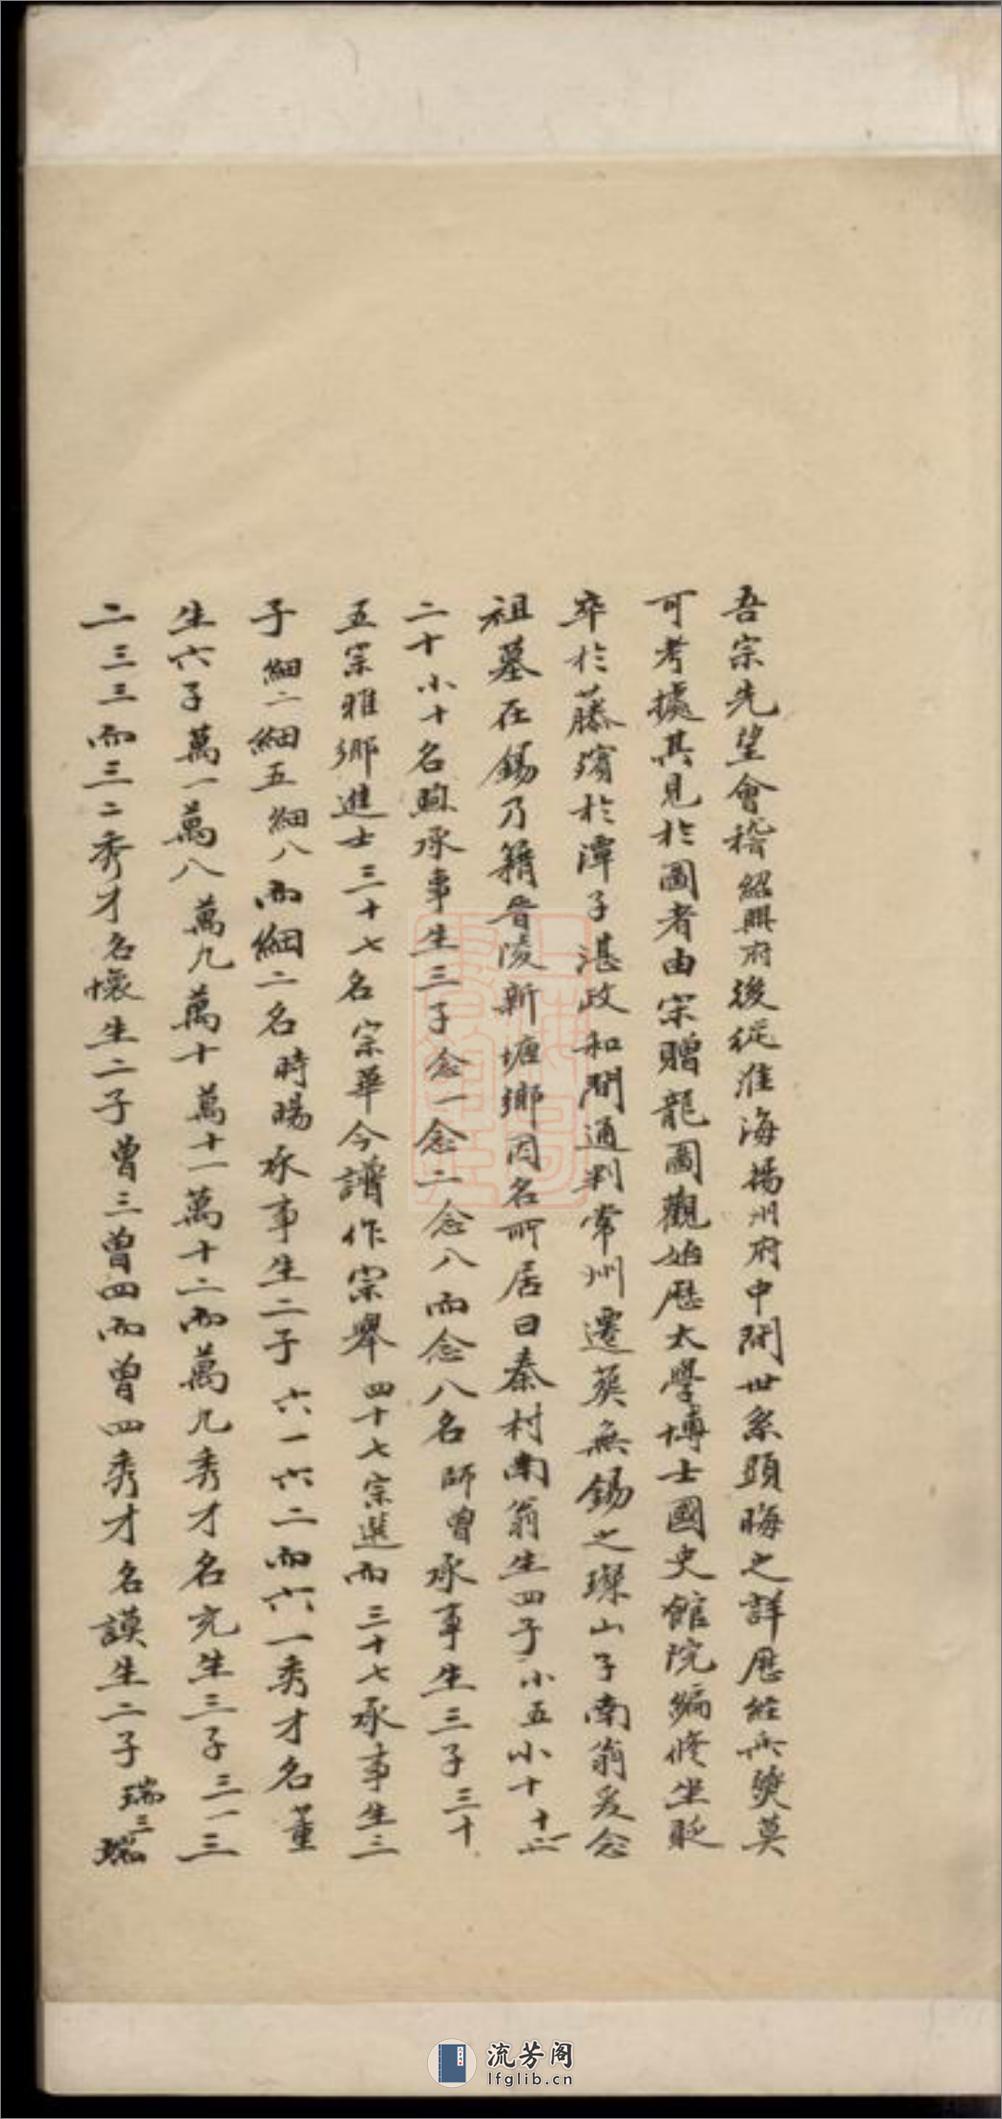 吾宗先望會稽紹興府後從淮海揚州府中間世系顕晦之詳歷經兵燹莫
可考據其見於圖者由宋贈龍圖觀始歷太學博士國史館院編修坐貶
卒於藤殯於潭子湛政和間通判常州遷葬無錫之璨山子南翁爰念
祖墓在錫乃籍晉陵新塘鄉因名所居曰秦村南翁生四子小五小十十
二十小十名煦承事生三子念一念二念八而念八名師曾承事生三子三十
五宗雅鄉進士三十七名宗華今譜作宗舉四十七宗選而三十七承事生三
子細二細五細八而細二名時暘承事生二子六一六二而六一秀才名董
生六子萬一萬八萬九萬十萬十一萬十二而萬九秀才名充生三子三一三
二三三而三二秀才名懷生二子曾三曾四而曾四秀才名謨生二子瑞三瑞
流芳阁
lfglib.cn